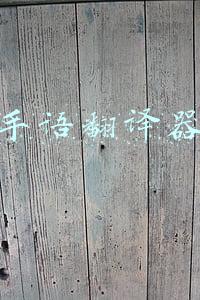 手语翻译器